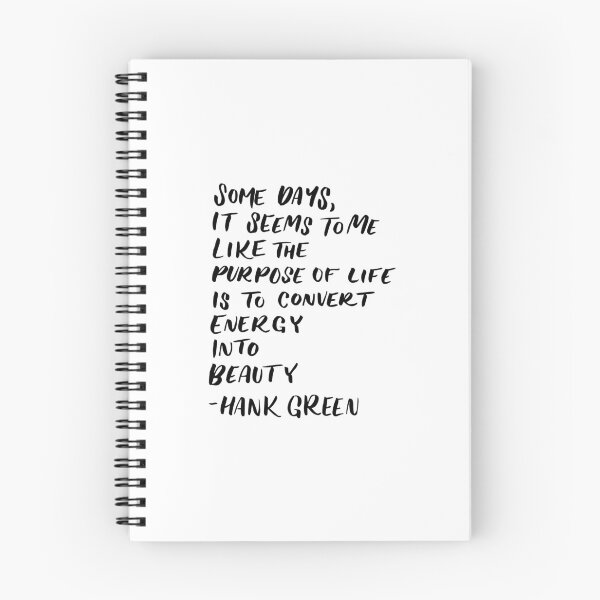 SOME DAYS,
IT SEEMS TO ME
LIKE THE
PURPOSE OF LIFE
IS TO CONVERT
ENERGY
INTO
BEAUTY
-HANK GREEN